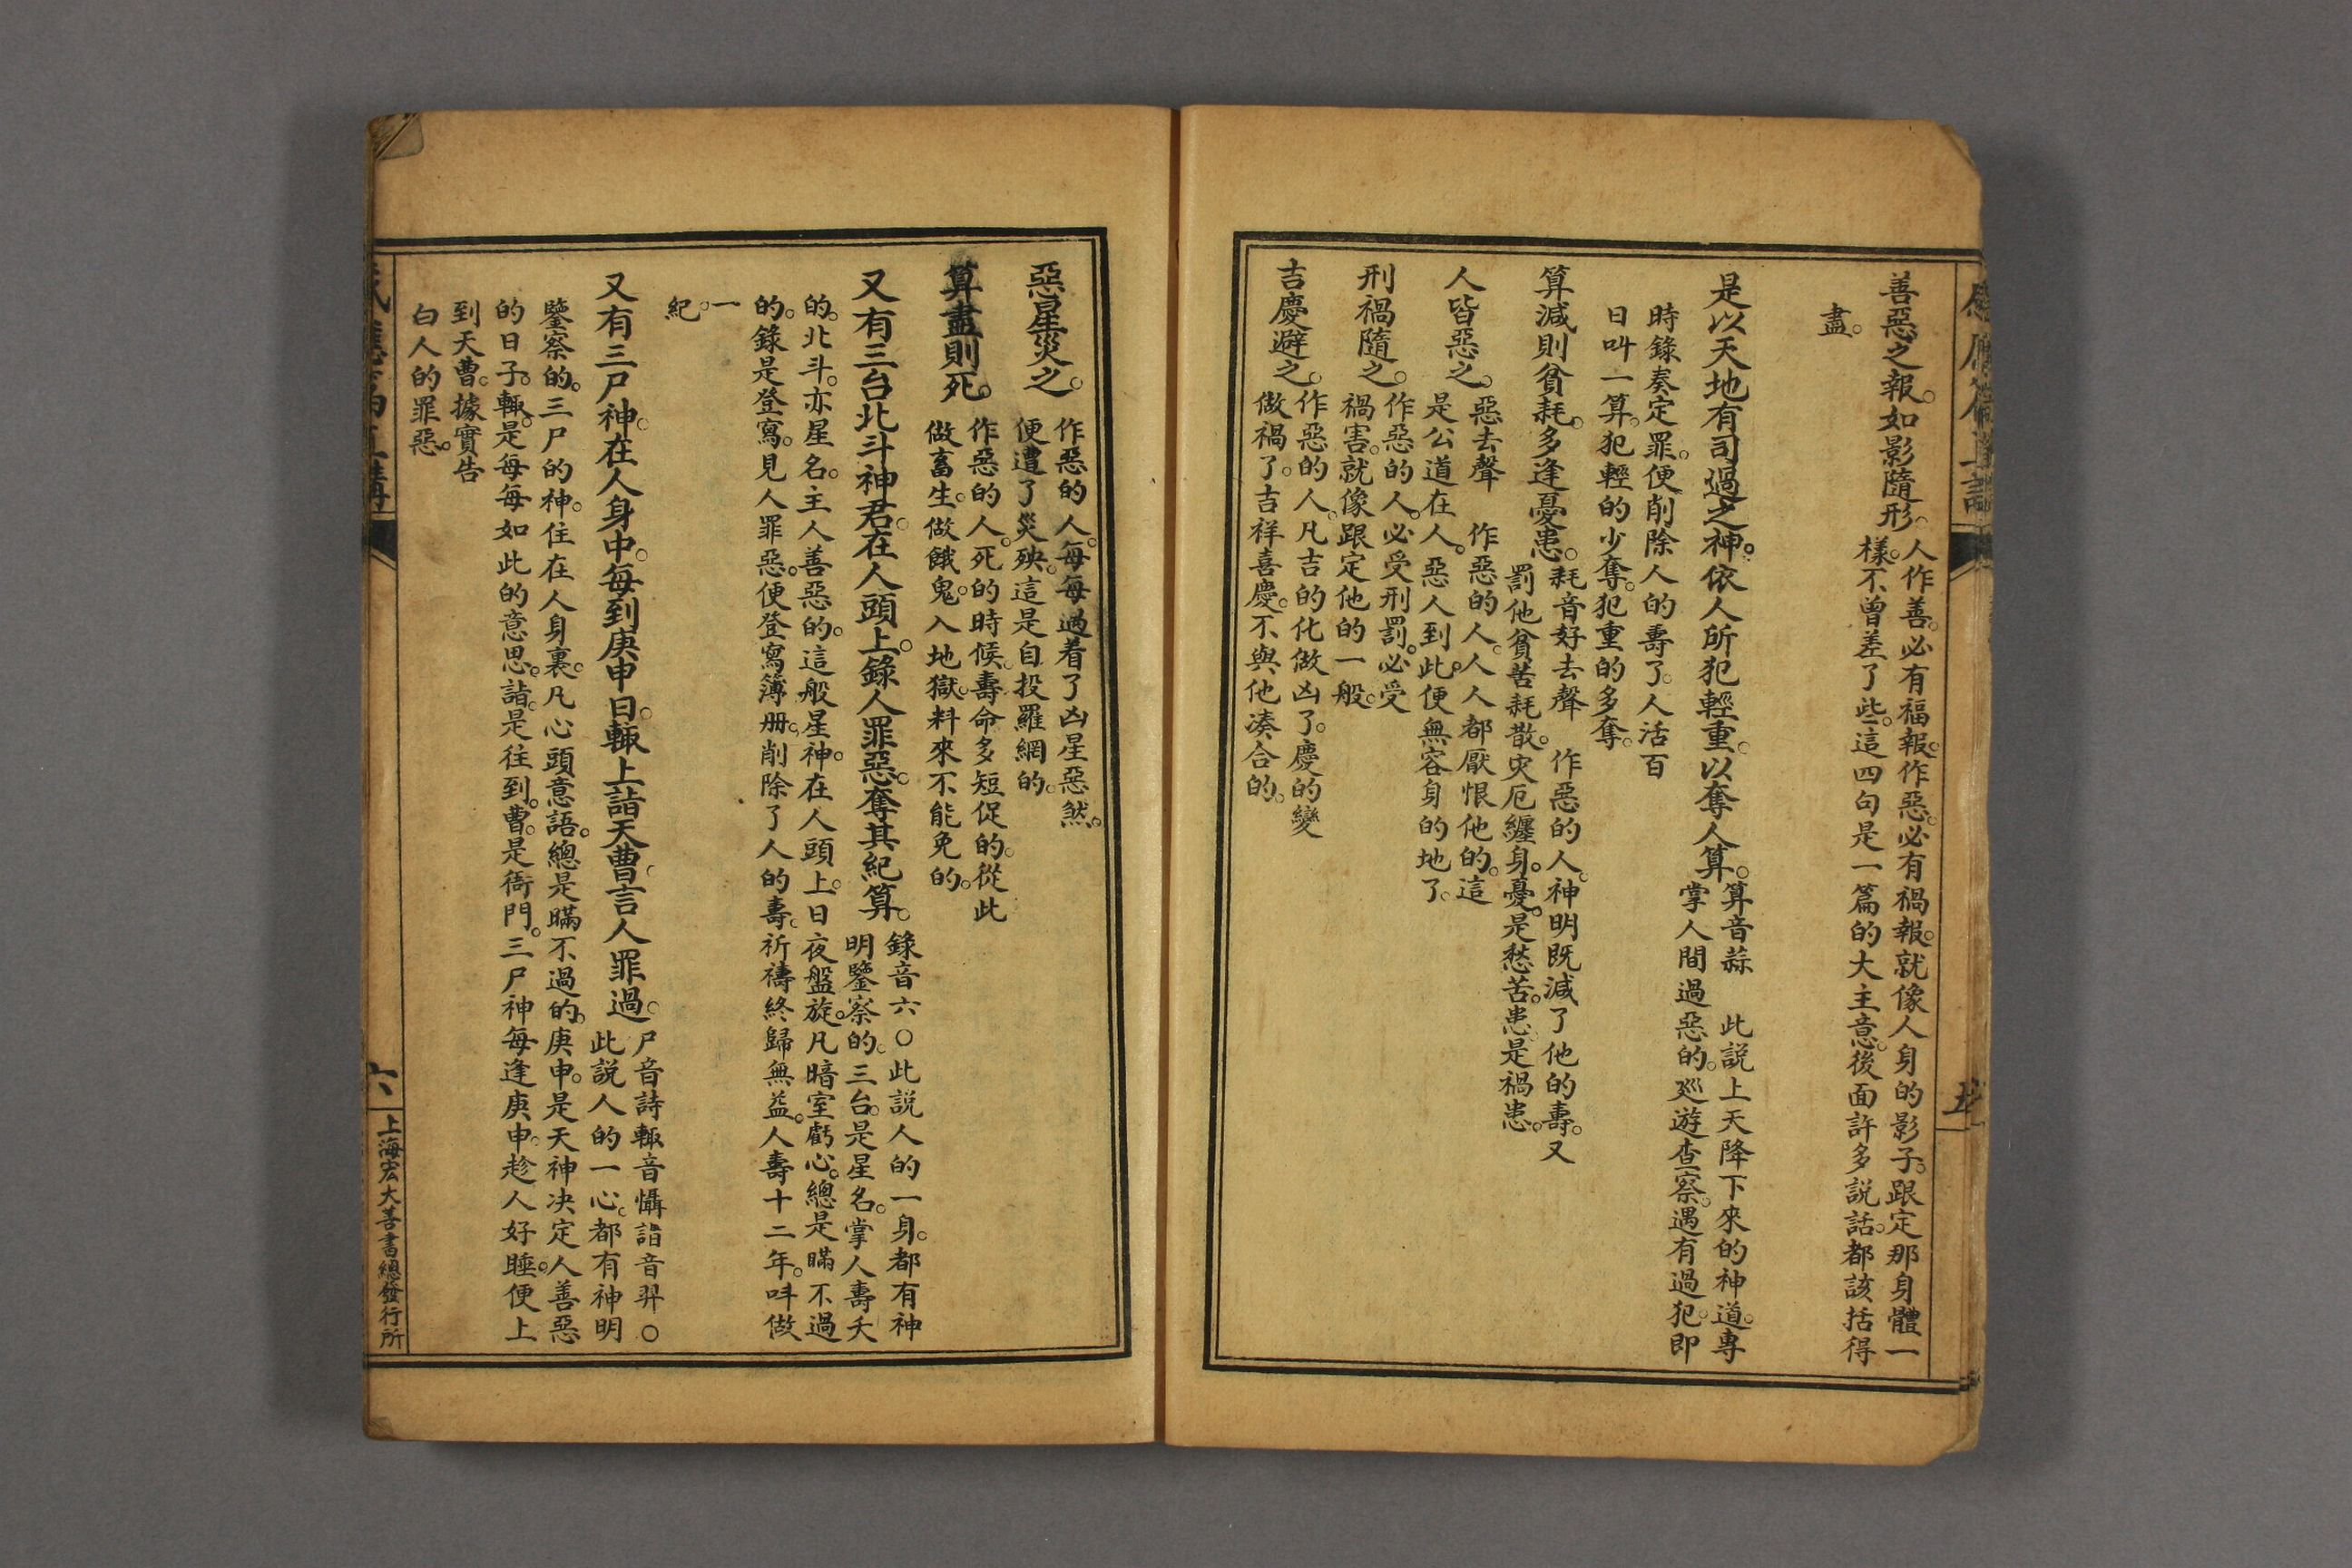 善惡之報。如影隨形。
人作善。必有福報。作惡。必有禍報。就像人身的影子。跟定那身體一
樣。不曾差了些。這四句是一篇的大主意。後面許多説話。都該括得
盡。
是以天地有司過之神。依人所犯輕重。以奪人算。
算音蒜 此説上天降下來的神道。專
掌人間過惡的。巡遊查察。遇有過犯。即
時錄奏定罪。便削除人的壽了。人活百
日叫一算。犯輕的少奪。犯重的多奪。
算減則貧耗。多逢憂患。
耗音好去聲 作惡的人。神明既減了他的壽。又
罰他貧苦耗散。灾厄纏身。憂。是愁苦。患。是禍患。
人皆惡之。
惡去聲 作惡的人。人人都厭恨他的。這
是公道在人。惡人到此。便無容身的地了。
刑禍隨之。
作惡的人。必受刑罰。必受
禍害。就像跟定他的一般。
吉慶避之。
作惡的人。凡吉的化做凶了。慶的變
做禍了。吉祥喜慶。不與他湊合的。
五
惡星災之。
作惡的人。每每過着了凶星惡煞。
便遭了災殃。這是自投羅網的。
算盡則死。
作惡的人。死的時候。壽命多短促的。從此
做畜生。做餓鬼。入地獄。料來不能免的。
又有三台北斗神君。在人頭上。錄人罪惡。奪其紀算。
錄音六○此説人的一身。都有神
明鑒察的。三台。是星名。掌人壽夭
的。北斗。亦星名。主人善惡的。這般星神。在人頭上。日夜盤旋。凡暗室虧心。總是瞞不過
的。錄是登寫。見人罪惡。便登寫簿册。削除了人的壽。祈禱終歸無益。人壽十二年。叫做
一
紀。
又有三尸神。在人身中。每到庚申日。輙上詣天曹。言人罪過。
尸音詩輙音懾詣音羿○
此説人的一心。都有神明
鑒察的。三尸的神。住在人身裏。凡心頭意語。總是瞞不過的。庚申。是天神决定人善惡
的日子。輙。是每每如此的意思。詣。是往到。曹。是衙門。三尸神每逢庚申。趁人好睡。便上
到天曹。據實告
白人的罪惡。
六
上海宏大善書總發行所